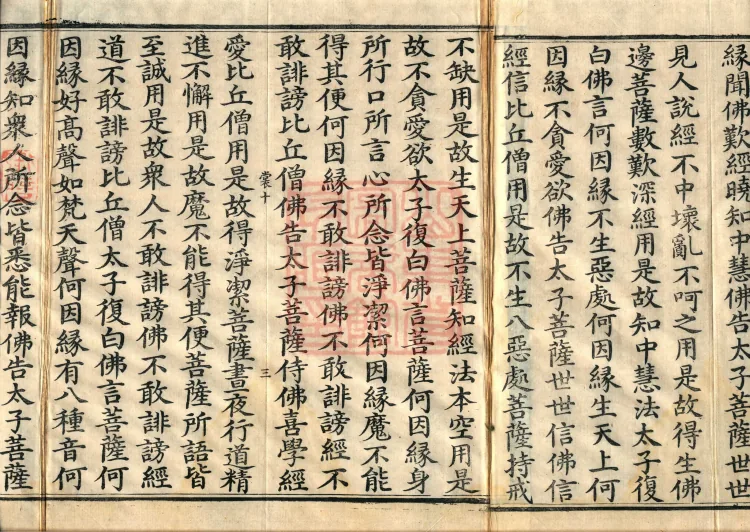 緣聞佛歎經曉知中慧佛告太子菩薩世世
見人說經不中壞亂不呵之用是故得生佛
邊菩薩數歎深經用是故知中慧法太子復
白佛言何因緣不生惡處何因緣生天上何
因緣不貪愛欲佛告太子菩薩世世信佛信
經信比丘僧用是故不生八惡處菩薩持戒
不缺用是故生天上菩薩知經法本空用是
故不貪愛欲太子復白佛言菩薩何因緣身
所行口所言心所念皆淨潔何因緣魔不能
得其便何因緣不敢誹謗佛不敢誹謗經不
敢誹謗比丘僧佛告太子菩薩侍佛喜學經
裳十 三
愛比丘僧用是故得淨潔菩薩晝夜行道精
進不懈用是故魔不能得其便菩薩所語皆
至誠用是故眾人不敢誹謗佛不敢誹謗經
道不敢誹謗比丘僧太子復白佛言菩薩何
因緣好高聲如梵天聲何因緣有八種音何
因緣知眾人所念皆悉能報佛告太子菩薩